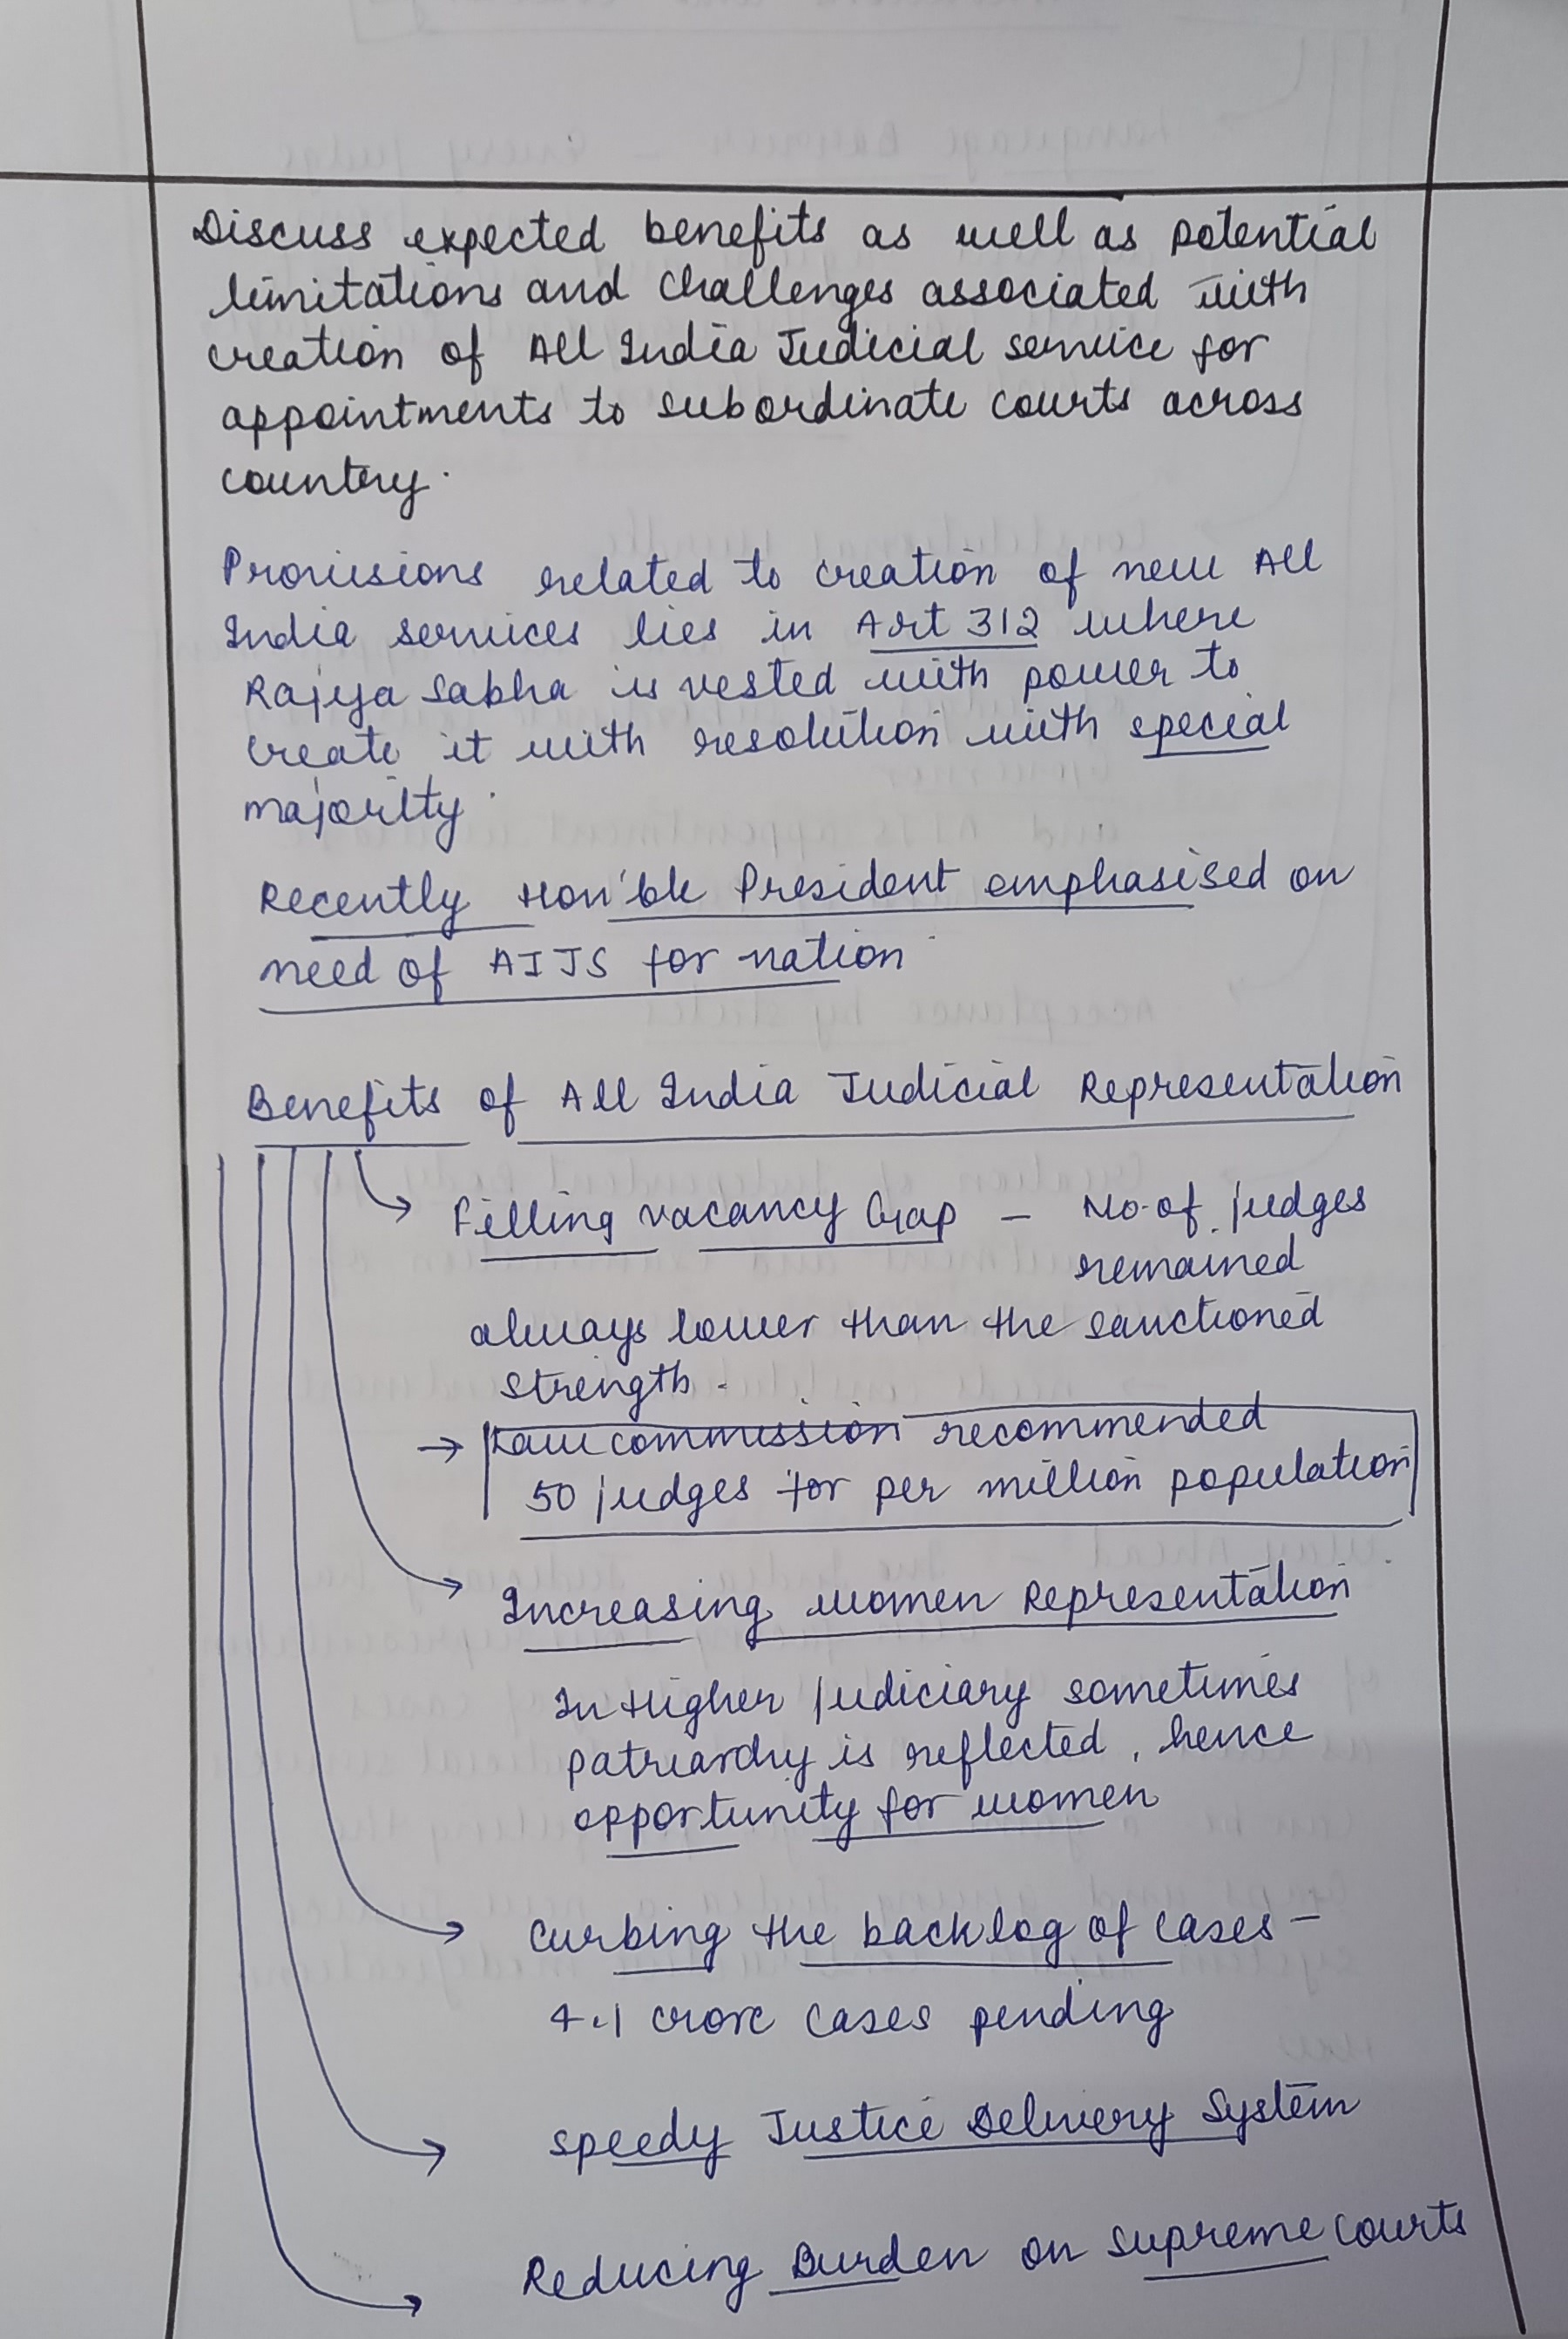 Discuss expected benefits as well as potential
limitations and challenges associated with
creation of All India Judicial service for
appointments to subordinate courts across
country.
Provisions related to creation of new All
India services lies in Art 312 where
Rajya Sabha is vested with power to
create it with resolution with special
majority.
Recently Hon'ble President emphasised on
need of AIJS for nation
Benefits of All India Judicial Representation
Filling vacancy Gap - No. of judges
remained
always lower than the sanctioned
strength.
→ Law commission recommended
50 judges for per million population
Increasing women Representation
In Higher judiciary sometimes
patriarchy is reflected, hence
opportunity for women
Curbing the backlog of cases -
4.1 crore cases pending
Speedy Justice Delivery System
Reducing Burden on Supreme courts